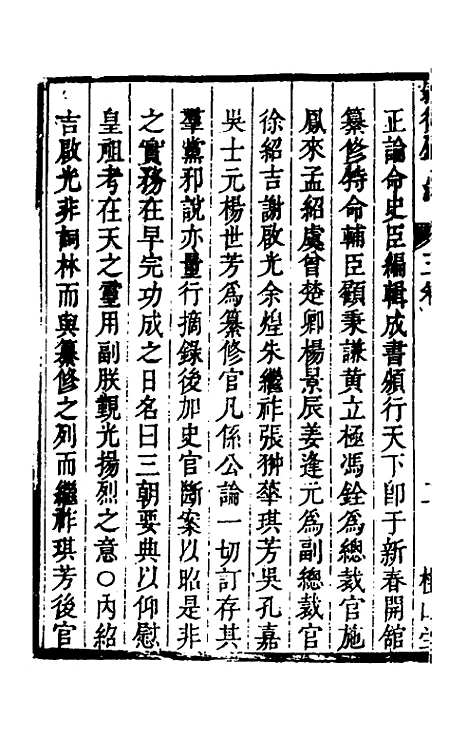 三
正論命史臣編輯成書頒行天下卽于新春開舘
纂修特命輔臣顧秉謙黃立極馮銓爲總裁官施
鳳來孟紹虞曾楚卿楊景辰姜逢元爲副總裁官
徐紹吉謝啟光余煌朱繼祚張翀華琪芳吳孔嘉
吳士元楊世芳爲纂修官凡係公論一切訂存其
羣黨邪說亦量行摘錄後加史官斷案以昭是非
之實務在早完功成之日名曰三朝要典以仰慰
皇祖考在天之靈用副朕覲光揚烈之意○內紹
吉啟光非詞林而與纂修之列而繼祚琪芳後官